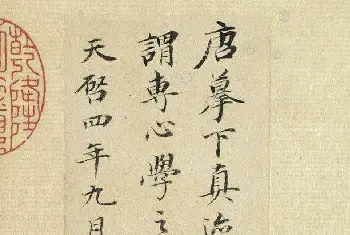 唐摹下真迹
謂專心學之
天啓四年九月